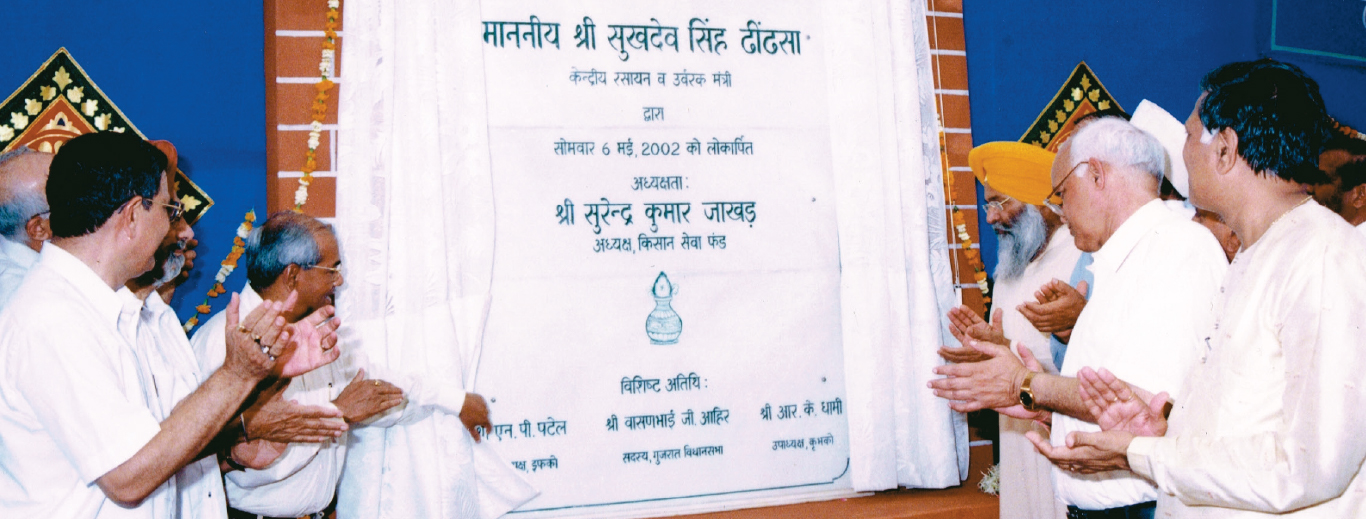 माननीय श्री सुखदेव सिंह ढींढसा
केन्द्रीय रसायन व उर्वरक मंत्री
द्वारा
सोमवार 6 मई, 2002 को लोकार्पित
अध्यक्षता:
श्री सुरेन्द्र कुमार जाखड़
अध्यक्ष, किसान सेवा फंड
विशिष्ट अतिथि:
एन. पी. पटेल श्री वासणभाई जी. आहिर श्री आर. के. धामी
इफको सदस्य, गुजरात विधानसभा उपाध्यक्ष, कृभको